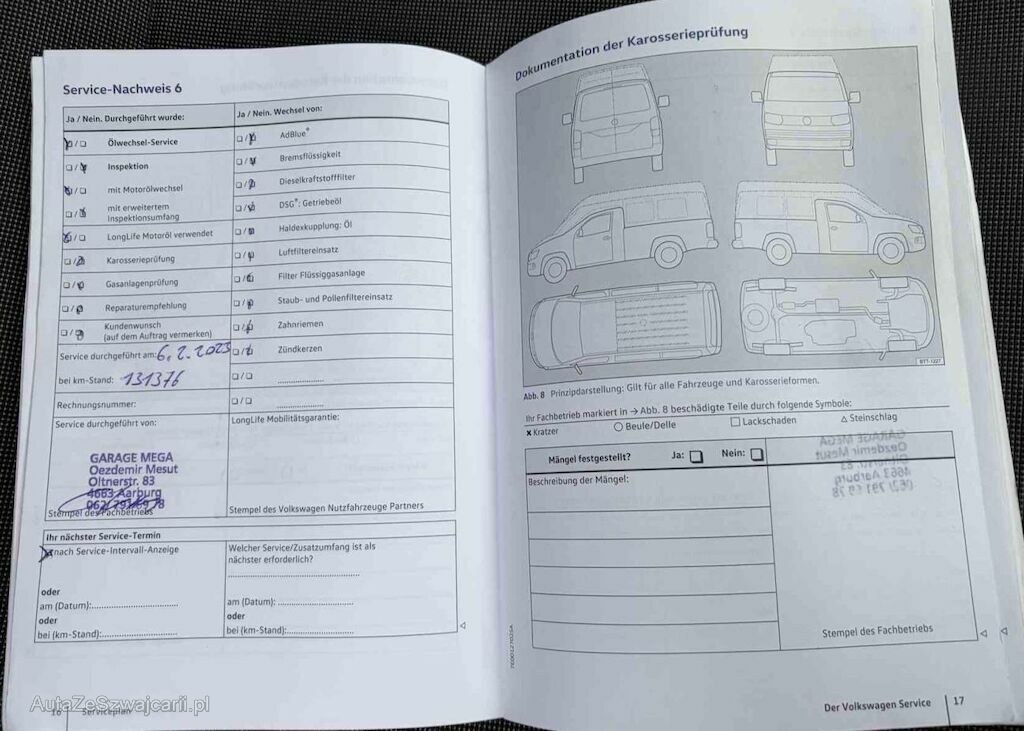 Service-Nachweis 6
Ja / Nein. Durchgeführt wurde:
Ja / Nein. Wechsel von:
Ölwechsel-Service
AdBlue®
Inspektion
Bremsflüssigkeit
mit Motorölwechsel
Dieselkraftstofffilter
mit erweitertem
Inspektionsumfang
DSG®: Getriebeöl
LongLife Motoröl verwendet
Haldexkupplung: Öl
Karosserieprüfung
Luftfiltereinsatz
Gasanlagenprüfung
Filter Flüssiggasanlage
Reparaturempfehlung
Staub- und Pollenfiltereinsatz
Kundenwunsch
(auf dem Auftrag vermerken)
Zahnriemen
Service durchgeführt am: 6.2.2023
Zündkerzen
bei km-Stand: 131376
Rechnungsnummer:
Service durchgeführt von:
LongLife Mobilitätsgarantie:
GARAGE MEGA
Oezdemir Mesut
Oltnerstr. 83
4663 Aarburg
062/ 791 69 78
Stempel des Fachbetriebs
Stempel des Volkswagen Nutzfahrzeuge Partners
Ihr nächster Service-Termin
nach Service-Intervall-Anzeige
Welcher Service/Zusatzumfang ist als
nächster erforderlich?
oder
am (Datum):
oder
bei (km-Stand):
am (Datum):
oder
bei (km-Stand):
16 Serviceplan
AutaZeSzwajcarii.pl
Dokumentation der Karosserieprüfung
BTT-1227
Abb. 8 Prinzipdarstellung: Gilt für alle Fahrzeuge und Karosserieformen.
Ihr Fachbetrieb markiert in → Abb. 8 beschädigte Teile durch folgende Symbole:
× Kratzer
○ Beule/Delle
□ Lackschaden
△ Steinschlag
Mängel festgestellt? Ja: Nein:
Beschreibung der Mängel:
GARAGE MEGA
Oezdemir Mesut
4663 Aarburg
062/ 791 69 78
Stempel des Fachbetriebs
Der Volkswagen Service 17